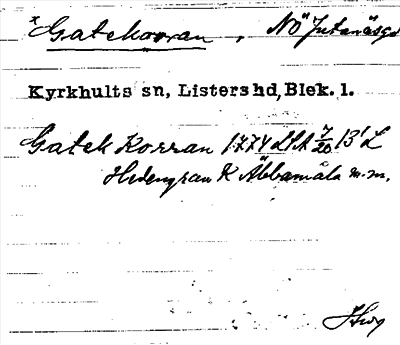 x Gatekorran, NÖ Jutanäsgd
Kyrkhults sn, Listers hd, Blek. l.
Gatek Korran 1774 LSA 7/20 13' L
Hedengran K Äbbamåla m.m.